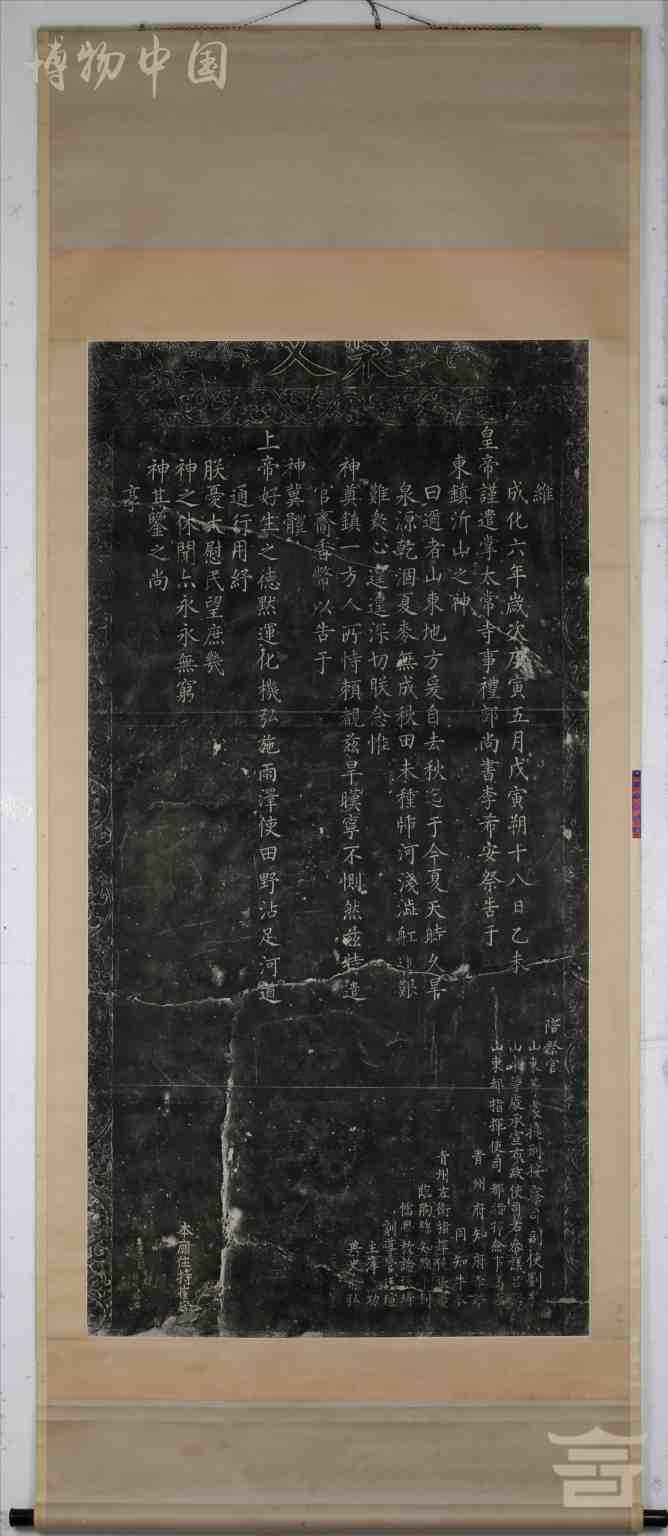 博物中国
祭文
維
成化六年歲次庚寅五月戊寅朔十八日乙未
皇帝謹遣掌太常寺事禮部尚書李希安祭告于
東鎮沂山之神
曰邇者山東地方爰自去秋迄于今夏天時久旱
泉源乾涸夏麥無成秋田未種帀河淺澁舡運艱
難衆心遑遑深切朕念惟
神奠鎮一方人所恃賴覩兹旱暵寧不惻然兹特遣
官齋香幣以告于
神冀體
上帝好生之德默運化機弘施雨澤使田野沾足河道
通行用紓
朕憂大慰民望庶幾
神之休聞亦永永無窮
神其鑒之尚
享
陪祭官
山東提刑按察司副使劉
山東等處承宣布政使司右參議
山東都指揮使司都指揮僉事
青州府知府李
同知牛
青州左衛指揮
臨朐縣知縣
儒學教諭
主簿 功
典史 弘
本廟住持